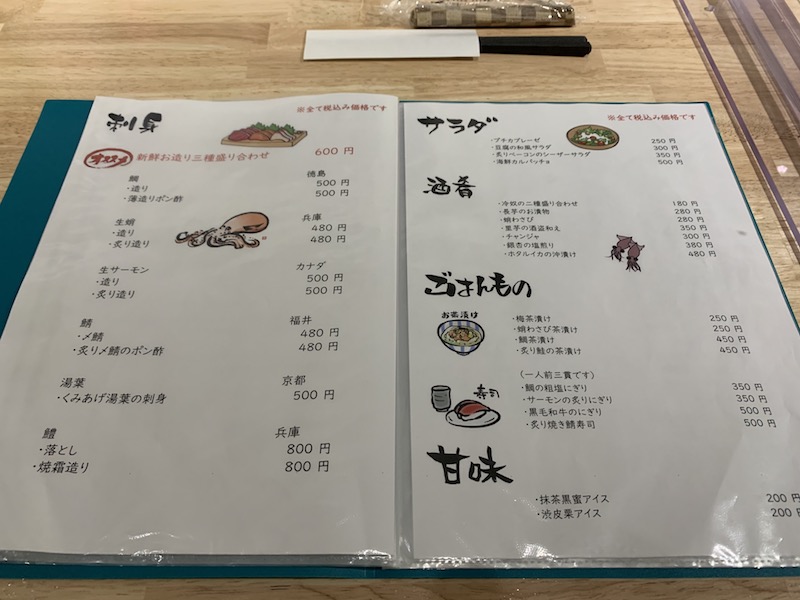 刺身
※全て税込み価格です
オススメ 新鮮お造り三種盛り合わせ 600 円
鯛 徳島
・造り 500 円
・薄造りポン酢 500 円
生蛸 兵庫
・造り 480 円
・炙り造り 480 円
生サーモン カナダ
・造り 500 円
・炙り造り 500 円
鯖 福井
・〆鯖 480 円
・炙り〆鯖のポン酢 480 円
湯葉 京都
・くみあげ湯葉の刺身 500 円
鱧 兵庫
・落とし 800 円
・焼霜造り 800 円
サラダ
※全て税込み価格です
・プチカプレーゼ 250 円
・豆腐の和風サラダ 300 円
・炙りベーコンのシーザーサラダ 350 円
・海鮮カルパッチョ 500 円
酒肴
・冷奴の二種盛り合わせ 180 円
・長芋のお漬物 280 円
・蛸わさび 280 円
・里芋の酒盗和え 350 円
・チャンジャ 300 円
・銀杏の塩煎り 380 円
・ホタルイカの沖漬け 480 円
ごはんもの
お茶漬け
・梅茶漬け 250 円
・蛸わさび茶漬け 250 円
・鯛茶漬け 450 円
・炙り鮭の茶漬け 450 円
(一人前三貫です)
寿司
・鯛の粗塩にぎり 350 円
・サーモンの炙りにぎり 350 円
・黒毛和牛のにぎり 500 円
・炙り焼き鯖寿司 500 円
甘味
・抹茶黒蜜アイス 200 円
・渋皮栗アイス 200 円